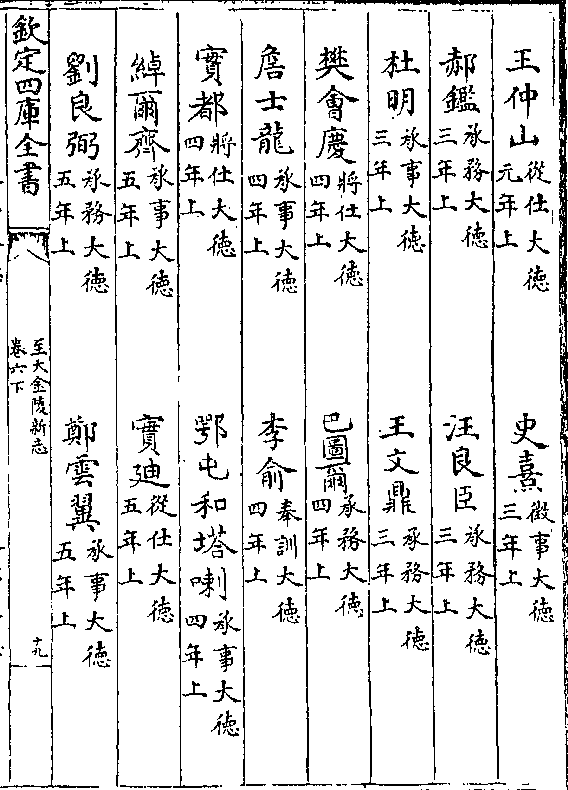 王仲山從仕大德元年上 史熹徵事大德三年上
郝鑑承務大德三年上 汪良臣承務大德三年上
杜明承事大德三年上 王文鼎承務大德三年上
樊會慶將仕大德四年上 巴圖爾承務大德四年上
詹士龍承事大德四年上 李俞奉訓大德四年上
實都將仕大德四年上 鄂屯和塔喇承事大德四年上
綽爾齊承事大德五年上 實迪從仕大德五年上
劉良弼承務大德五年上 鄭雲翼承事大德五年上
欽定四庫全書 至大金陵新志卷六下 十九